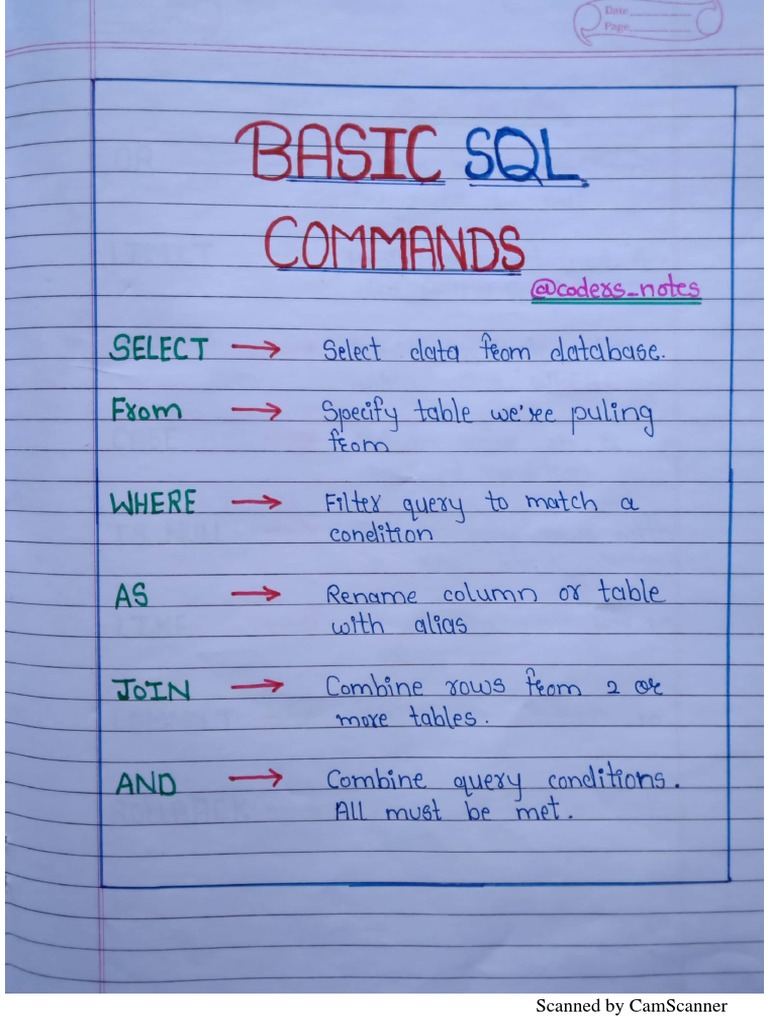 Date
Page
BASIC SQL
COMMANDS
@coders_notes
SELECT → Select data from database.
From → Specify table we're puling
from
WHERE → Filter query to match a
condition
AS → Rename column or table
with alias
JOIN → Combine rows from 2 or
more tables.
AND → Combine query conditions.
All must be met.
Scanned by CamScanner